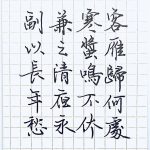 客雁歸何處
寒螿鳴不休
兼之清夜永
副以長年愁